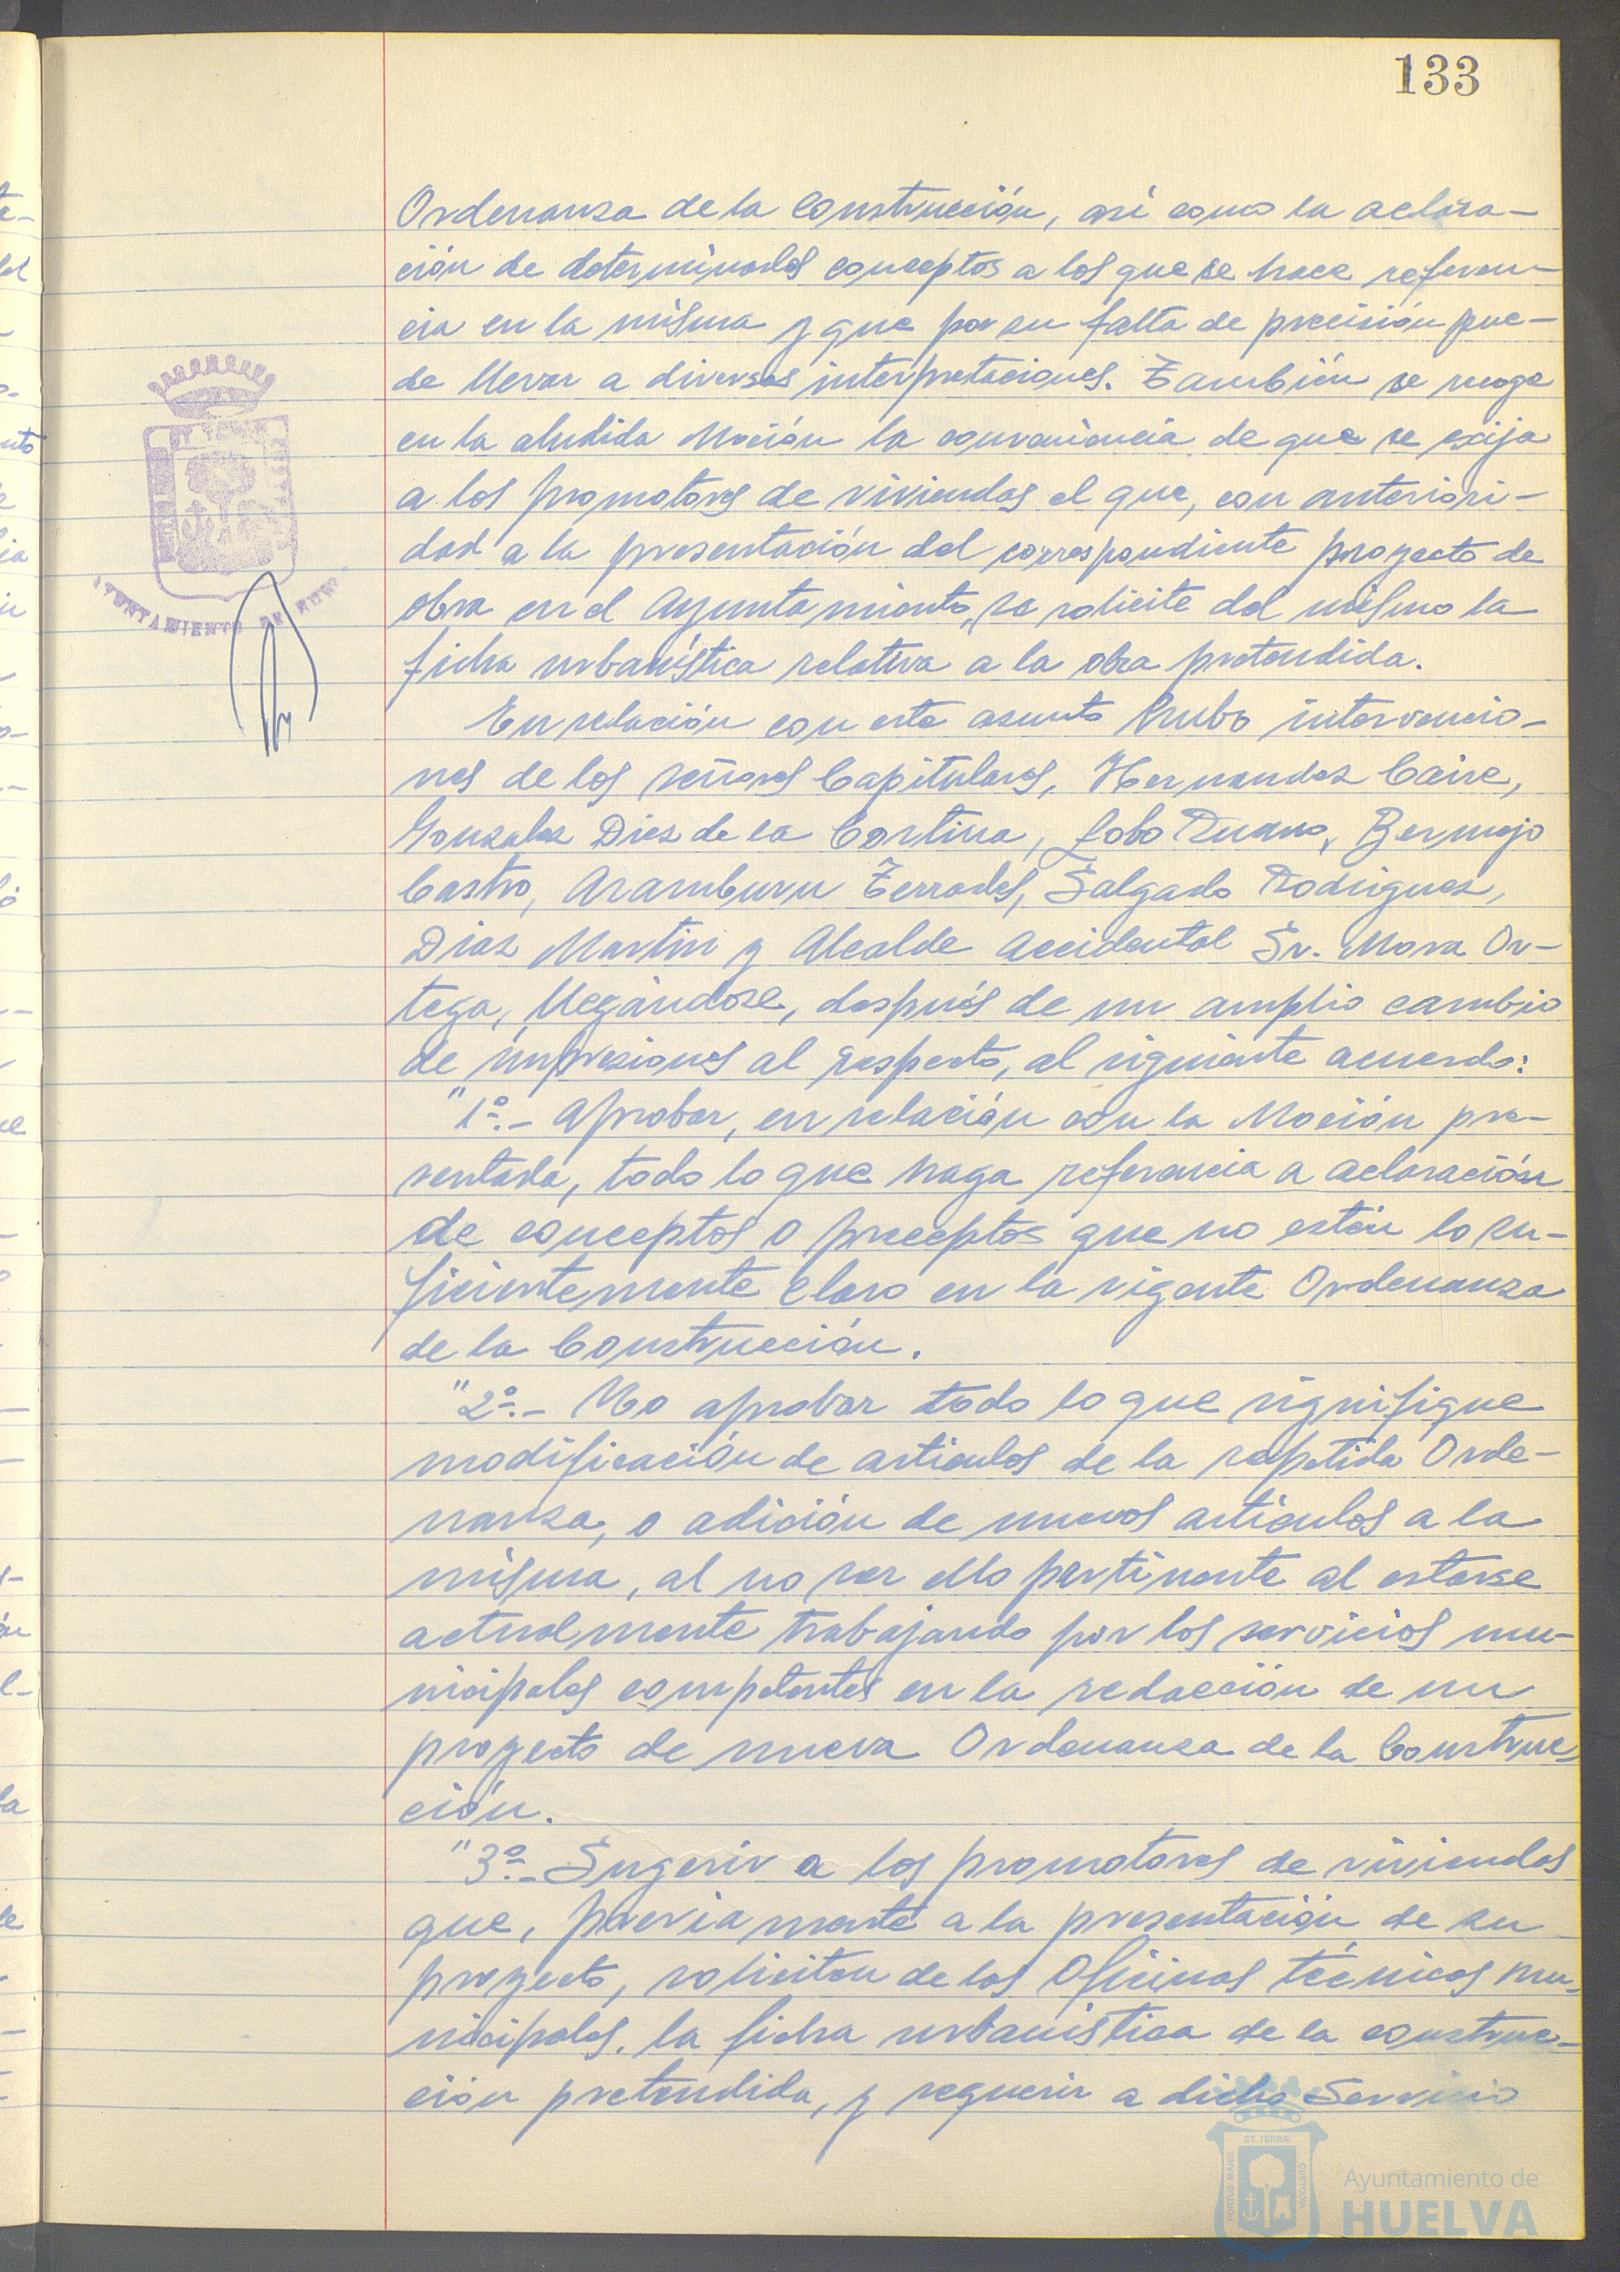 133
Ordenanza de la Construcción, así como la aclara-
ción de determinados conceptos a los que se hace referen-
cia en la misma y que por su falta de precisión pue-
de llevar a diversas interpretaciones. También se recoge
en la aludida Moción la conveniencia de que se exija
a los promotores de viviendas el que, con anteriori-
dad a la presentación del correspondiente proyecto de
obra en el Ayuntamiento, se solicite del mismo la
ficha urbanística relativa a la obra pretendida.
En relación con este asunto hubo intervencio-
nes de los señores Capitulares, Hernandez Caire,
Gonzalez Diez de la Cortina, Lobo Ruano, Bermejo
Castro, Aramburu Terrades, Salgado Rodriguez,
Diaz Martin y Alcalde Accidental Sr. Mora Or-
tega, llegándose, después de un amplio cambio
de impresiones al respecto, al siguiente acuerdo:
"1º.- Aprobar, en relación con la Moción pre-
sentada, todo lo que haga referencia a aclaración
de conceptos o preceptos que no estén lo su-
ficientemente claro en la vigente Ordenanza
de la Construcción.
"2º.- No aprobar todo lo que signifique
modificación de articulos de la repetida Orde-
nanza, o adición de nuevos articulos a la
misma, al no ser ello pertinente al estarse
actualmente trabajando por los servicios mu-
nicipales competentes en la redacción de un
proyecto de nueva Ordenanza de la Construc-
ción.
"3º.- Sugerir a los promotores de viviendas
que, previamente a la presentación de su
proyecto, soliciten de las Oficinas técnicas mu-
nicipales, la ficha urbanistica de la construc-
ción pretendida, y requerir a dicho Servicio
AYUNTAMIENTO DE
Ayuntamiento de
HUELVA
ET TERRÆ
PORTUS MARIS
CUSTODIA